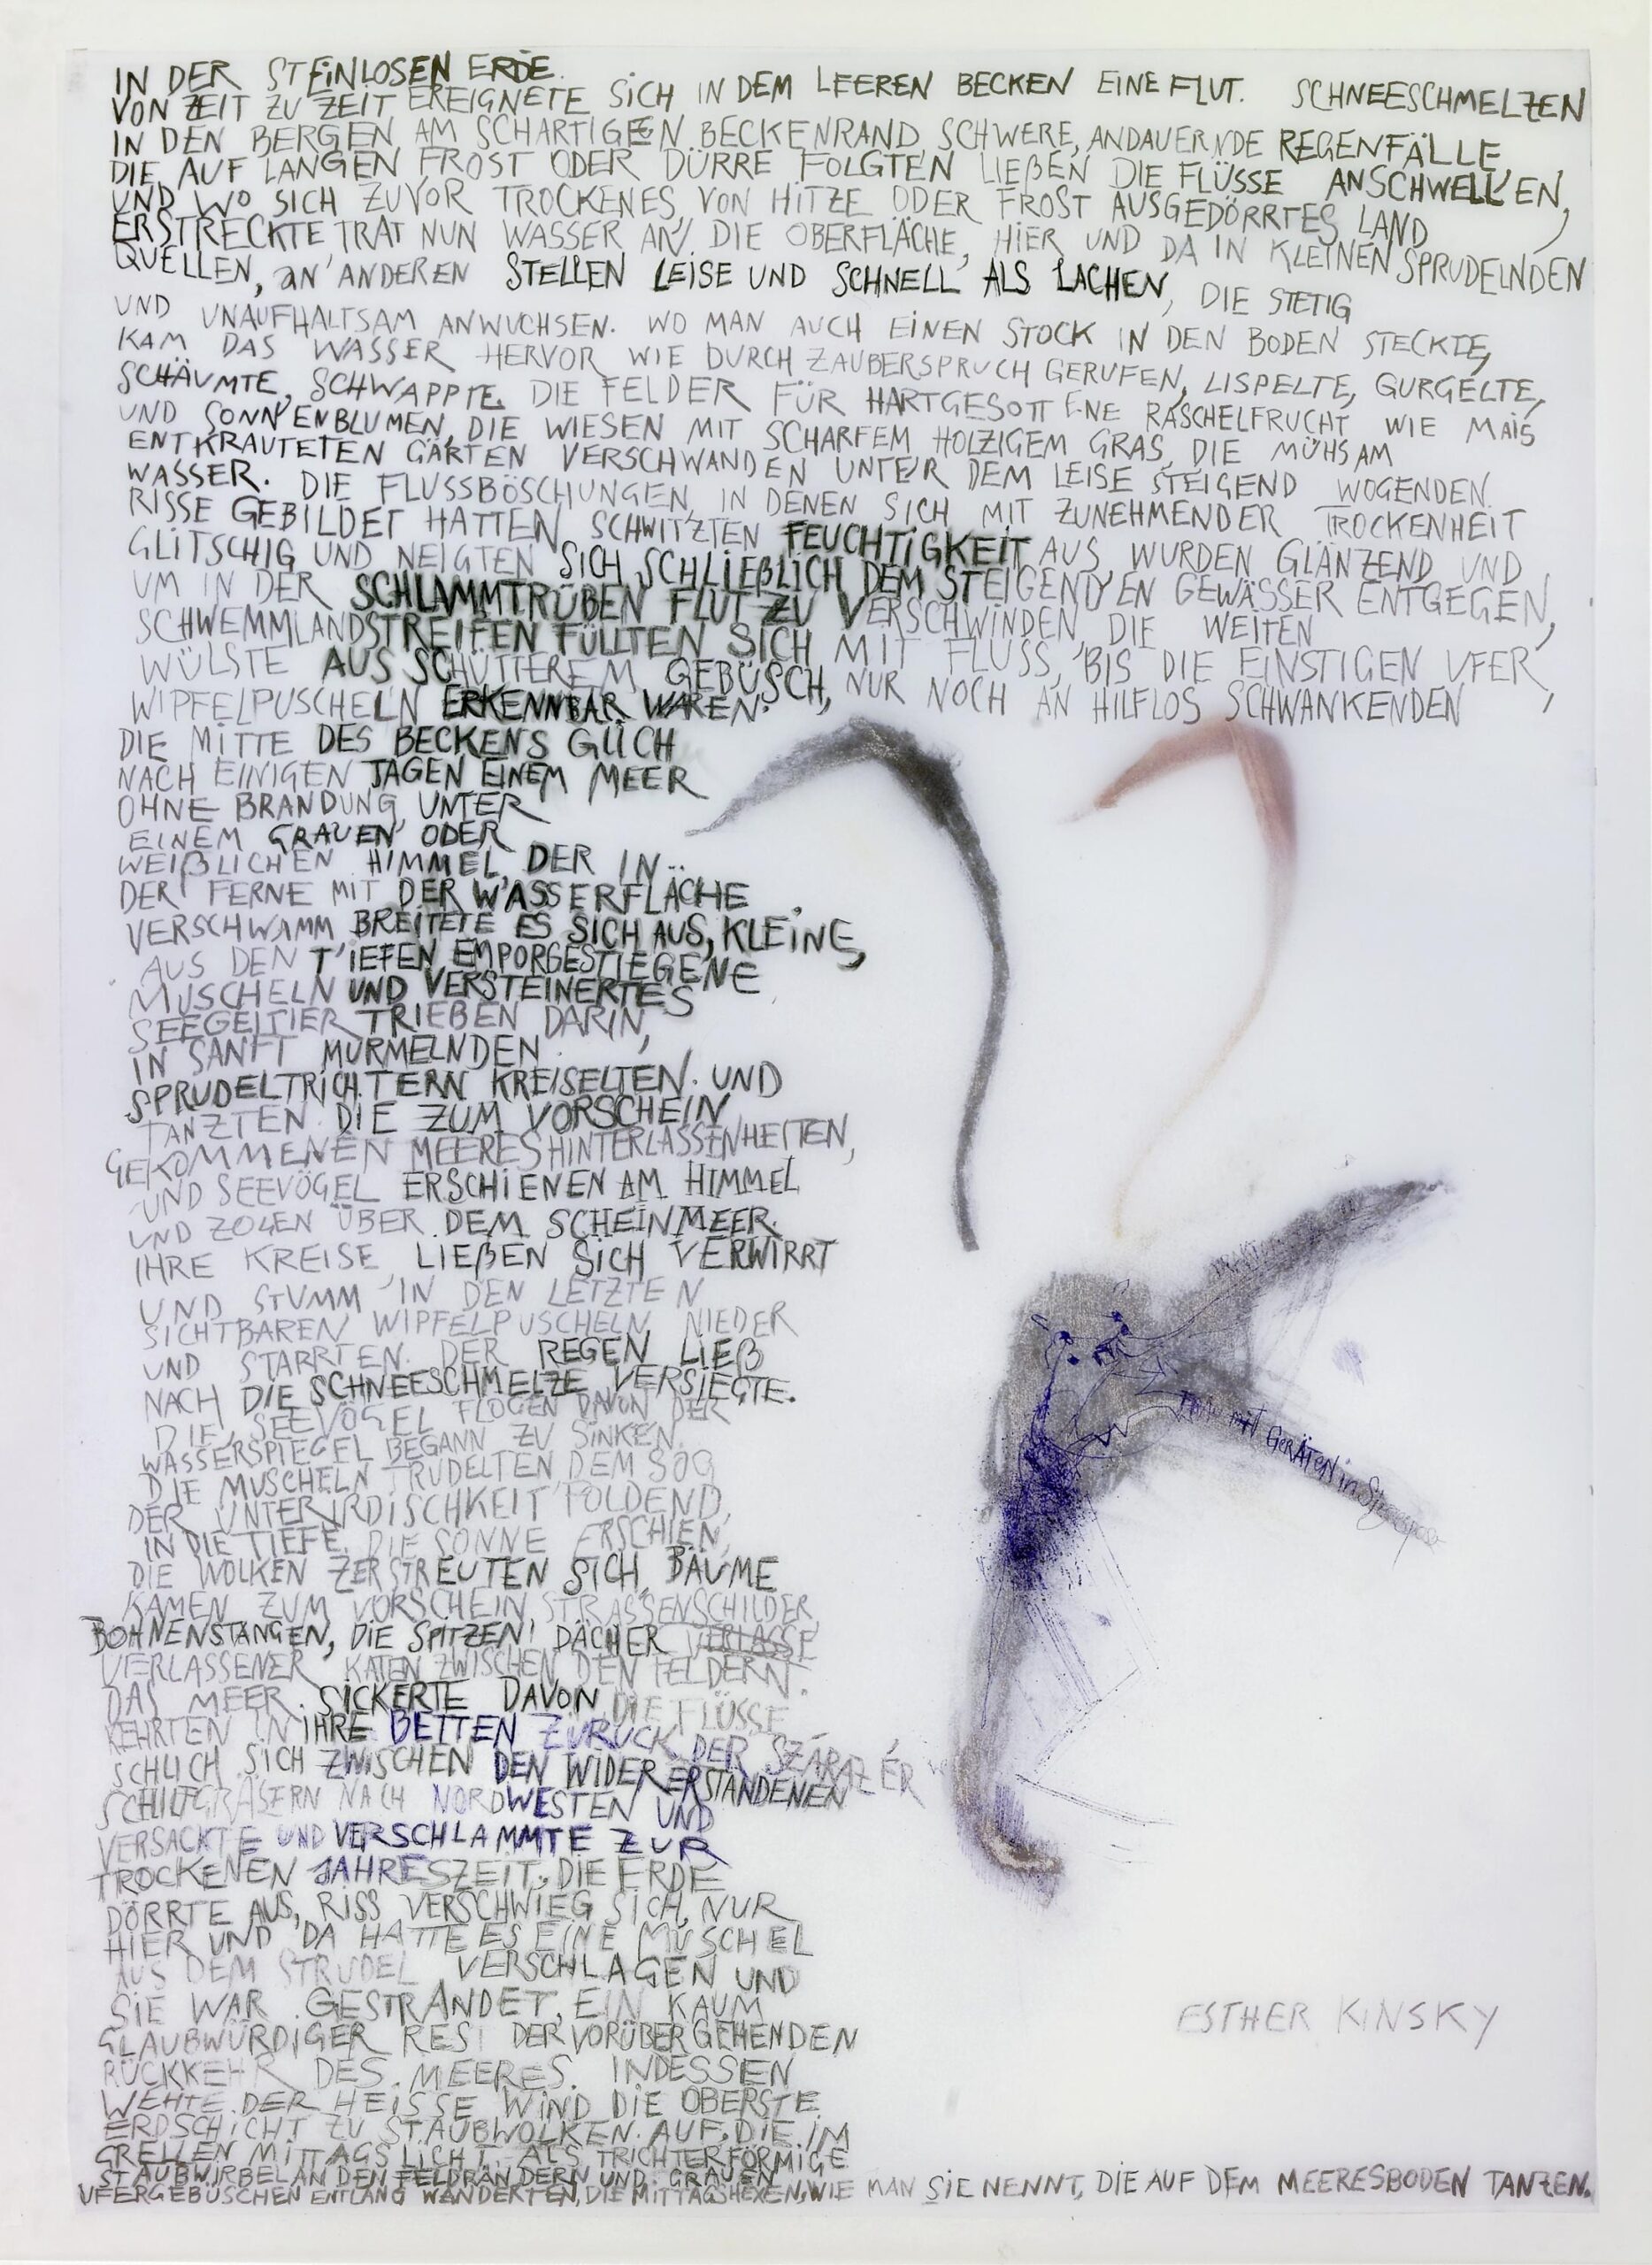 IN DER STEINLOSEN ERDE.
VON ZEIT ZU ZEIT EREIGNETE SICH IN DEM LEEREN BECKEN EINE FLUT. SCHNEESCHMELZEN
IN DEN BERGEN AM SCHARTIGEN BECKENRAND, SCHWERE, ANDAUERNDE REGENFÄLLE
DIE AUF LANGEN FROST ODER DÜRRE FOLGTEN LIEßEN DIE FLÜSSE ANSCHWELLEN,
UND WO SICH ZUVOR TROCKENES, VON HITZE ODER FROST AUSGEDÖRRTES LAND
ERSTRECKTE, TRAT NUN WASSER AN DIE OBERFLÄCHE, HIER UND DA IN KLEINEN SPRUDELNDEN
QUELLEN, AN ANDEREN STELLEN LEISE UND SCHNELL ALS LACHEN, DIE STETIG
UND UNAUFHALTSAM ANWUCHSEN. WO MAN AUCH EINEN STOCK IN DEN BODEN STECKTE,
KAM DAS WASSER HERVOR WIE DURCH ZAUBERSPRUCH GERUFEN, LISPELTE, GURGELTE,
SCHÄUMTE, SCHWAPPTE. DIE FELDER FÜR HARTGESOTTENE RASCHELFRUCHT WIE MAIS
UND SONNENBLUMEN, DIE WIESEN MIT SCHARFEM HOLZIGEM GRAS, DIE MÜHSAM
ENTKRAUTETEN GÄRTEN VERSCHWANDEN UNTER DEM LEISE STEIGEND WOGENDEN
WASSER. DIE FLUSSBÖSCHUNGEN, IN DENEN SICH MIT ZUNEHMENDER TROCKENHEIT
RISSE GEBILDET HATTEN, SCHWITZTEN FEUCHTIGKEIT AUS, WURDEN GLÄNZEND UND
GLITSCHIG UND NEIGTEN SICH SCHLIEßLICH DEM STEIGENDEN GEWÄSSER ENTGEGEN,
UM IN DER SCHLAMMTRÜBEN FLUT ZU VERSCHWINDEN, DIE WEITEN
SCHWEMMLANDSTREIFEN FÜLLTEN SICH MIT FLUSS, BIS DIE EINSTIGEN UFER,
WÜLSTE AUS SCHÜTTEREM GEBÜSCH, NUR NOCH AN HILFLOS SCHWANKENDEN
WIPFELPUSCHELN ERKENNBAR WAREN.
DIE MITTE DES BECKENS GLICH
NACH EINIGEN TAGEN EINEM MEER
OHNE BRANDUNG, UNTER
EINEM GRAUEN ODER
WEIßLICHEN HIMMEL, DER IN
DER FERNE MIT DER WASSERFLÄCHE
VERSCHWAMM BREITETE ES SICH AUS, KLEINE,
AUS DEN TIEFEN EMPORGESTIEGENE
MUSCHELN UND VERSTEINERTES
SEEGETIER TRIEBEN DARIN,
IN SANFT MURMELNDEN
SPRUDELTRICHTERN KREISELTEN UND
TANZTEN DIE ZUM VORSCHEIN
GEKOMMENEN MEERESHINTERLASSENHEITEN,
UND SEEVÖGEL ERSCHIENEN AM HIMMEL
UND ZOGEN ÜBER DEM SCHEINMEER
IHRE KREISE, LIEßEN SICH VERWIRRT
UND STUMM IN DEN LETZTEN
SICHTBAREN WIPFELPUSCHELN NIEDER
UND STARRTEN. DER REGEN LIEß
NACH DIE SCHNEESCHMELZE VERSIEGTE.
DIE SEEVÖGEL FLOGEN DAVON DER
WASSERSPIEGEL BEGANN ZU SINKEN.
DIE MUSCHELN TRUDELTEN, DEM SOG
DER UNTERIRDISCHKEIT FOLGEND,
IN DIE TIEFE. DIE SONNE ERSCHIEN,
DIE WOLKEN ZERSTREUTEN SICH, BÄUME
KAMEN ZUM VORSCHEIN, STRASSENSCHILDER,
BOHNENSTANGEN, DIE SPITZEN! DÄCHER VERLASSE
VERLASSENER KATEN ZWISCHEN DEN FELDERN.
DAS MEER SICKERTE DAVON DIE FLÜSSE
KEHRTEN IN IHRE BETTEN ZURÜCK, DER SZÁRAZ ÉR
SCHLICH SICH ZWISCHEN DEN WIDERERSTANDENEN
SCHILFGRÄSERN NACH NORDWESTEN UND
VERSACKTE UND VERSCHLAMMTE ZUR
TROCKENEN JAHRESZEIT. DIE ERDE
DÖRRTE AUS, RISS VERSCHWIEG SICH, NUR
HIER UND DA HATTE ES EINE MUSCHEL
AUS DEM STRUDEL VERSCHLAGEN UND
SIE WAR GESTRANDET, EIN KAUM
GLAUBWÜRDIGER REST DER VORÜBERGEHENDEN
RÜCKKEHR DES MEERES. INDESSEN
WEHTE DER HEISSE WIND DIE OBERSTE
ERDSCHICHT ZU STAUBWOLKEN AUF, DIE IM
GRELLEN MITTAGSLICHT ALS TRICHTERFÖRMIGE
STAUBWIRBEL AN DEN FELDRÄNDERN UND GRAUEN
UFERGEBÜSCHEN ENTLANG WANDERTEN, DIE MITTAGSHEXEN, WIE MAN SIE NENNT, DIE AUF DEM MEERESBODEN TANZEN.
mit GERÄTEN in
ESTHER KINSKY